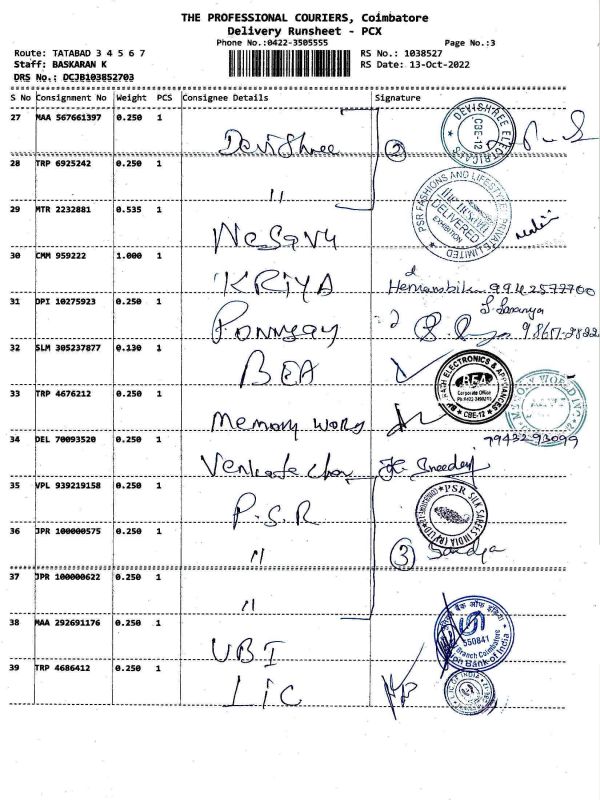 THE PROFESSIONAL COURIERS, Coimbatore
Delivery Runsheet - PCX
Phone No.:0422-3505555
Page No.:3
Route: TATABAD 3 4 5 6 7
RS No.: 1038527
Staff: BASKARAN K
RS Date: 13-Oct-2022
DRS No.: DCJB103852703
S No Consignment No Weight PCS Consignee Details Signature
27 MAA 567661397 0.250 1
DeviShree
2
DEVISHREE ELECTRICALS
CBE-12
28 TRP 6925242 0.250 1
"
29 MTR 2232881 0.535 1
Nesavu
PSR FASHIONS AND LIFESTYLE PRIVATE LIMITED
DELIVERED
EXHIBITION
30 CMM 959222 1.000 1
KRIYA
31 DPI 10275923 0.250 1
32 SLM 305237877 0.130 1
BEA
ELECTRONICS & APPLIANCES
BEA
Corporate Office
CBE-12
33 TRP 4676212 0.250 1
Memory
34 DEL 70093520 0.250 1
35 VPL 939219158 0.250 1
P.S.R
PSR SILK SAREES INDIA (P) LTD
36 JPR 100000575 0.250 1
"
3
37 JPR 100000622 0.250 1
"
38 MAA 292691176 0.250 1
UBI
550841
Union Bank of India
39 TRP 4686412 0.250 1
LIC